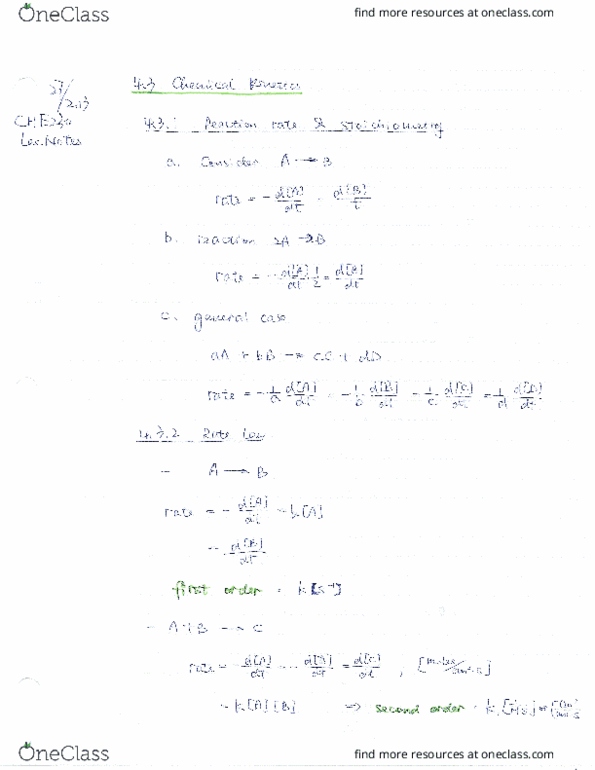 OneClass
find more resources at oneclass.com
27/
2.13
CHE220
Lec. Notes
4.3 Chemical Kinetics
4.3.1 Reaction rate & stoichiometry
a. Consider A → B
rate = - d[A]/dt = d[B]/t
b. reaction 2A → B
rate = - d[A]/dt 1/2 = d[A]/dt
c. general case
aA + bB → cC + dD
rate = - 1/a d[A]/dt = - 1/b d[B]/dt = 1/c d[C]/dt = 1/d d[D]/dt
4.3.2 Rate law
- A → B
rate = - d[A]/dt = k[A]
= d[B]/dt
first order = k [s⁻¹]
- A + B → C
rate = - d[A]/dt = - d[B]/dt = d[C]/dt ,
= k[A][B] ⇒ second order = k
OneClass
find more resources at oneclass.com